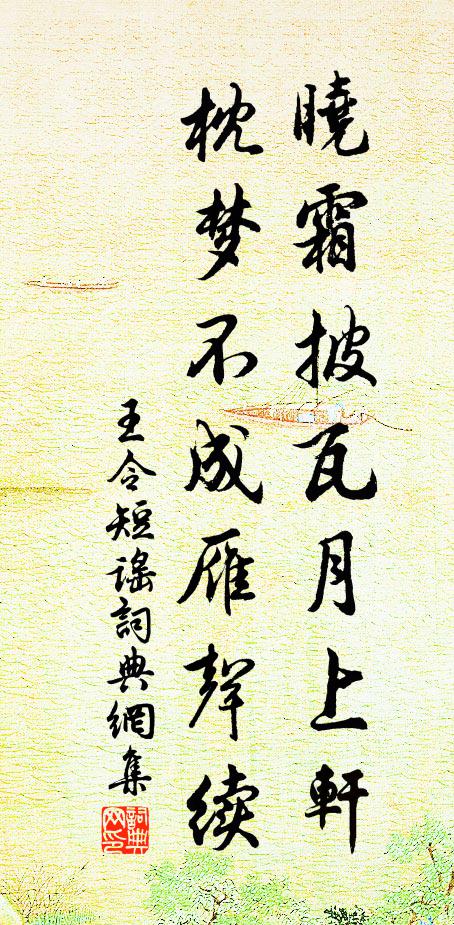 曉霜披瓦月上軒
枕梦不成雁聲续
王令短謠詞典網集
詞典网印